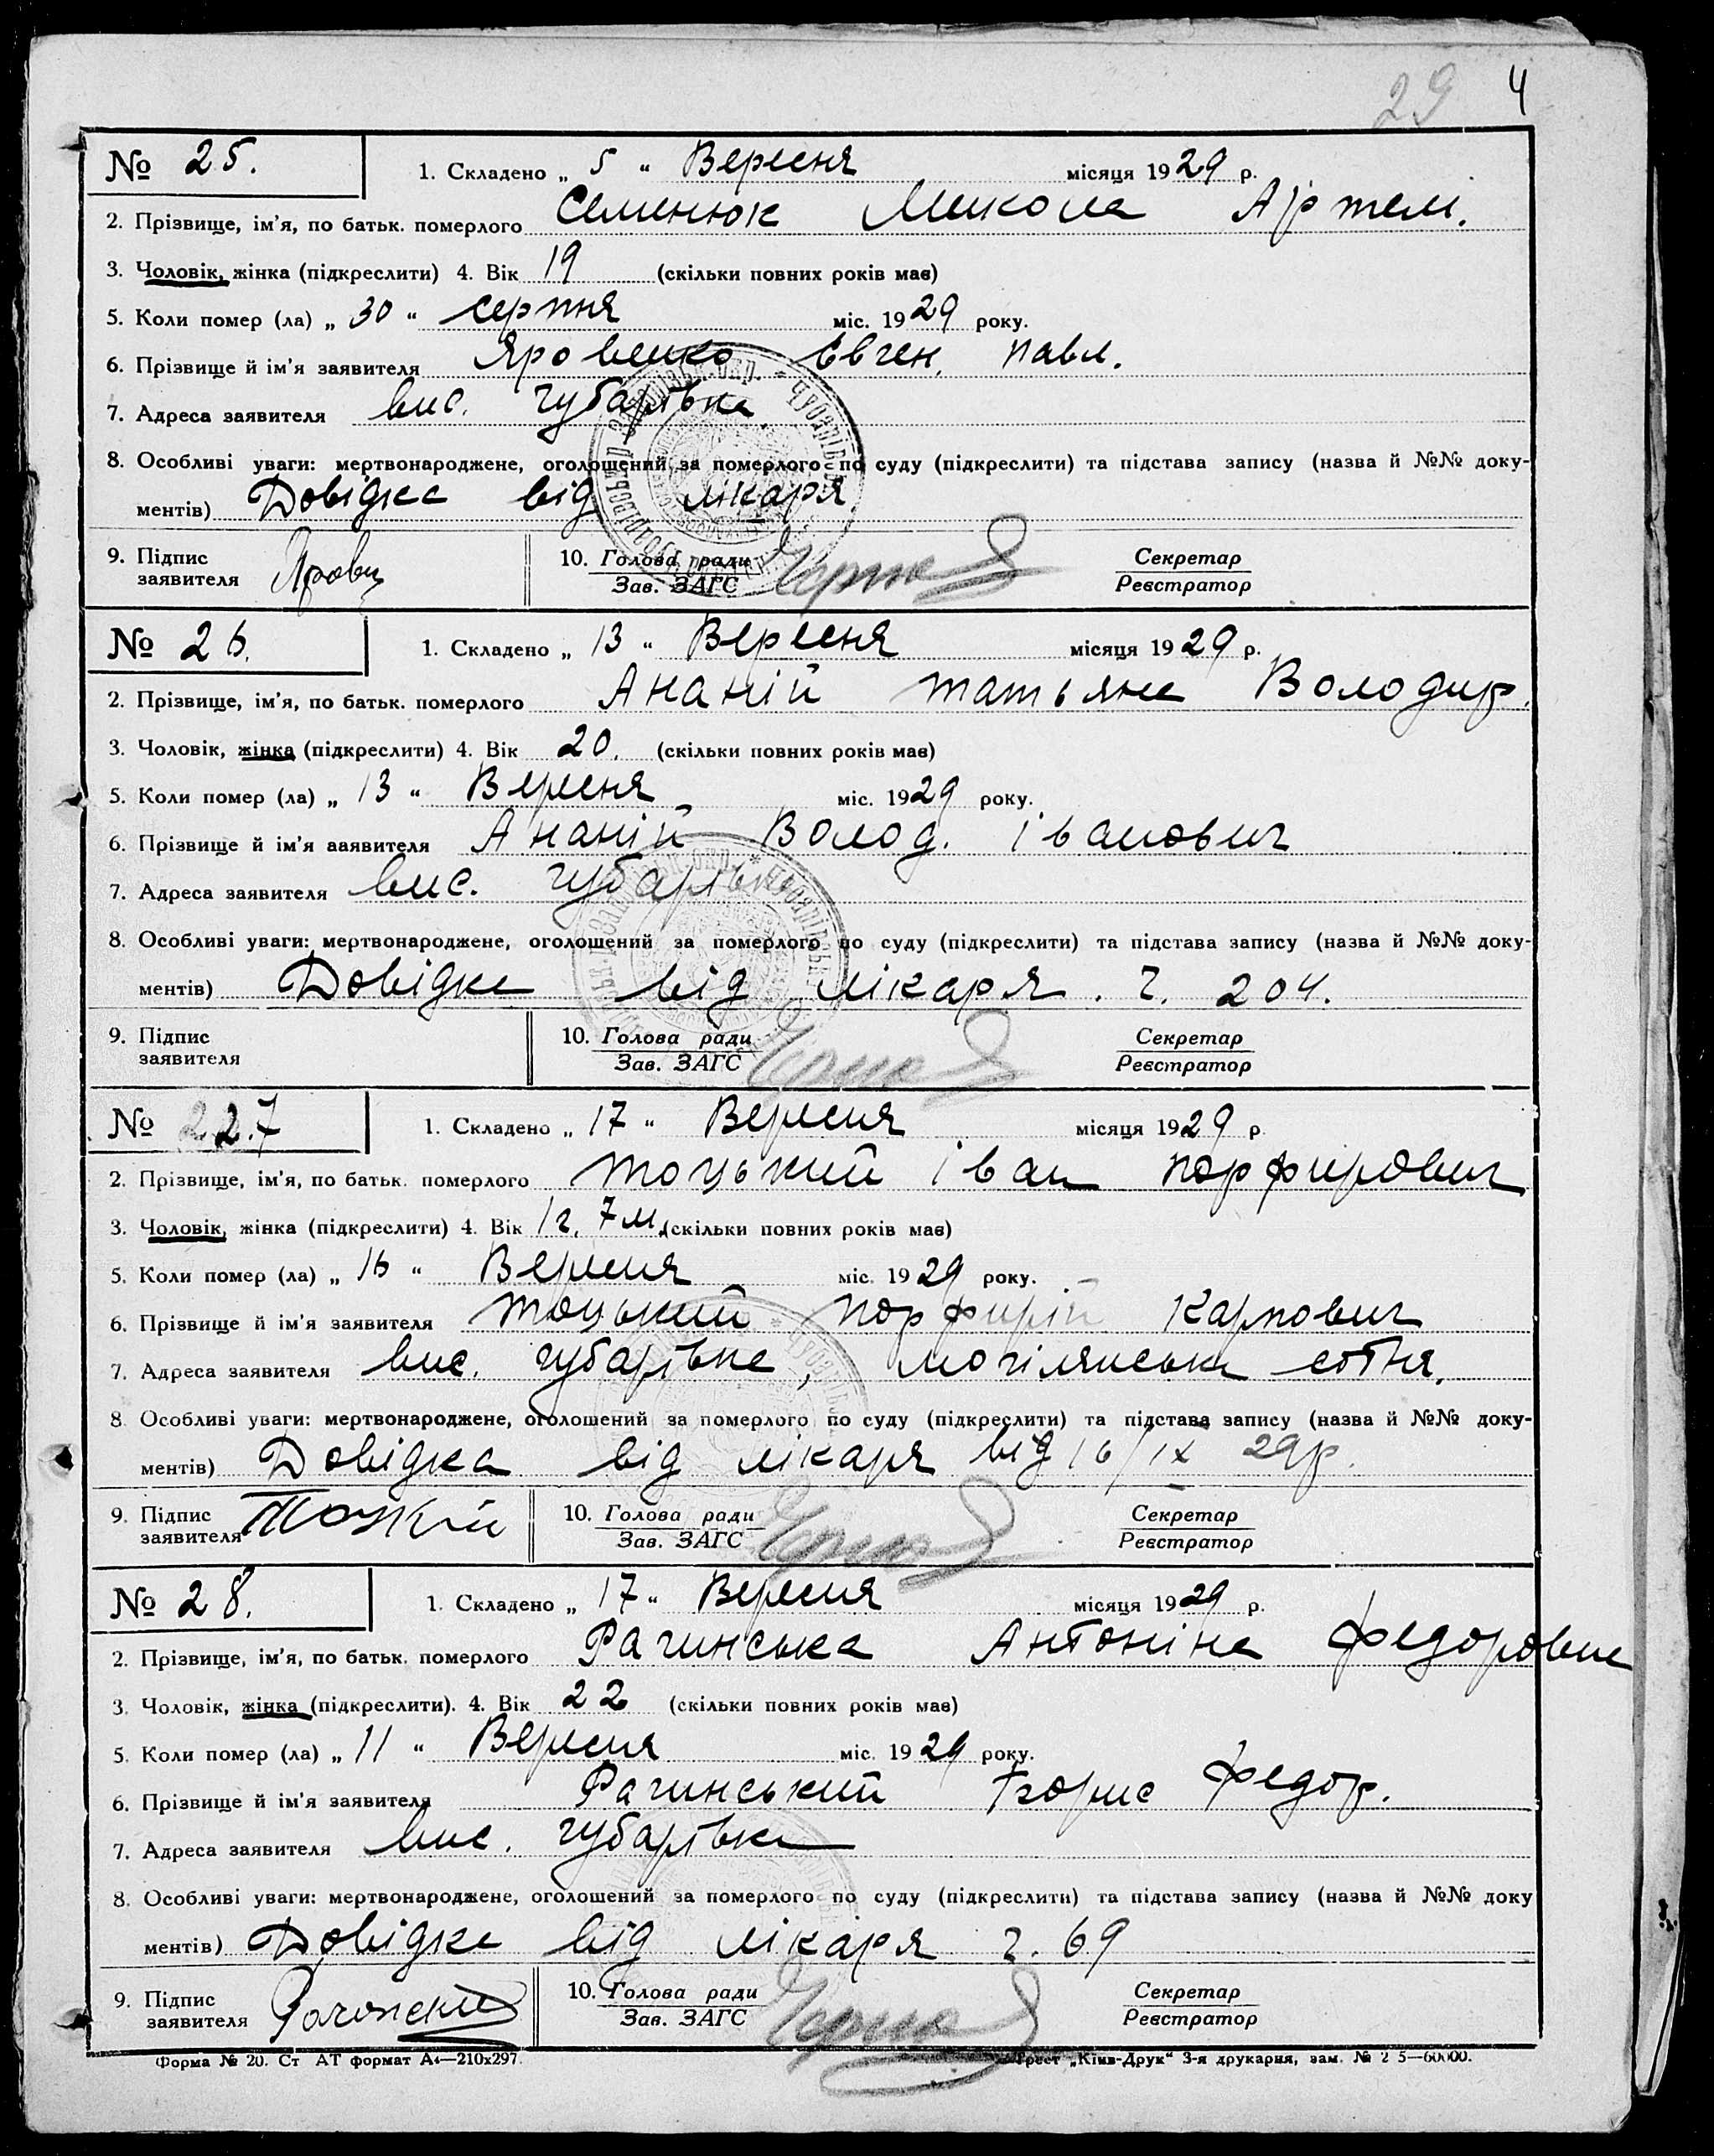 29 4
№ 25. 1. Складено „ 5 “ Вересня місяця 1929 р.
2. Прізвище, ім'я, по батьк. померлого Семенюк Микола Артем.
3. Чоловік, жінка (підкреслити) 4. Вік 19 (скільки повних років має)
5. Коли помер (ла) „ 30 “ серпня міс. 1929 року.
6. Прізвище й ім'я заявителя Яровенко Євген. Павл.
7. Адреса заявителя вис. Чубарівка
8. Особливі уваги: мертвонароджене, оголошений за померлого по суду (підкреслити) та підстава запису (назва й №№ доку-
ментів) Довідка від лікаря
9. Підпис заявителя 10. Голова ради Секретар
Зав. ЗАГС Реєстратор
№ 26. 1. Складено „ 13 “ Вересня місяця 1929 р.
2. Прізвище, ім'я, по батьк. померлого Ананій Татьяна Володир.
3. Чоловік, жінка (підкреслити) 4. Вік 20. (скільки повних років має)
5. Коли помер (ла) „ 13 “ Вересня міс. 1929 року.
6. Прізвище й ім'я заявителя Ананій Волод. Іванович
7. Адреса заявителя вис. Чубарівка
8. Особливі уваги: мертвонароджене, оголошений за померлого по суду (підкреслити) та підстава запису (назва й №№ доку-
ментів) Довідка від лікаря. Ч. 204.
9. Підпис заявителя 10. Голова ради Секретар
Зав. ЗАГС Реєстратор
№ 27 1. Складено „ 17 “ Вересня місяця 1929 р.
2. Прізвище, ім'я, по батьк. померлого Тоцький Іван Порфирович
3. Чоловік, жінка (підкреслити) 4. Вік 1 г. 7 м. (скільки повних років має)
5. Коли помер (ла) „ 16 “ Вересня міс. 1929 року.
6. Прізвище й ім'я заявителя Тоцький Порфирій Карпович
7. Адреса заявителя вис. Чубарівка, Могілянська сотня.
8. Особливі уваги: мертвонароджене, оголошений за померлого по суду (підкреслити) та підстава запису (назва й №№ доку-
ментів) Довідка від лікаря від 16/IX 29р.
9. Підпис заявителя 10. Голова ради Секретар
Зав. ЗАГС Реєстратор
№ 28. 1. Складено „ 17 “ Вересня місяця 1929 р.
2. Прізвище, ім'я, по батьк. померлого Рачинська Антоніна Федоровна
3. Чоловік, жінка (підкреслити). 4. Вік 22 (скільки повних років має)
5. Коли помер (ла) „ 11 “ Вересня міс. 1929 року.
6. Прізвище й ім'я заявителя Рачинський Борис Федор.
7. Адреса заявителя вис. Чубарівка
8. Особливі уваги: мертвонароджене, оголошений за померлого по суду (підкреслити) та підстава запису (назва й №№ доку
ментів) Довідка від лікаря ч. 69
9. Підпис заявителя 10. Голова ради Секретар
Зав. ЗАГС Реєстратор
Форма № 20. Ст АТ формат А4—210х297. Трест „Київ-Друк“ 3-я друкарня, зам. №